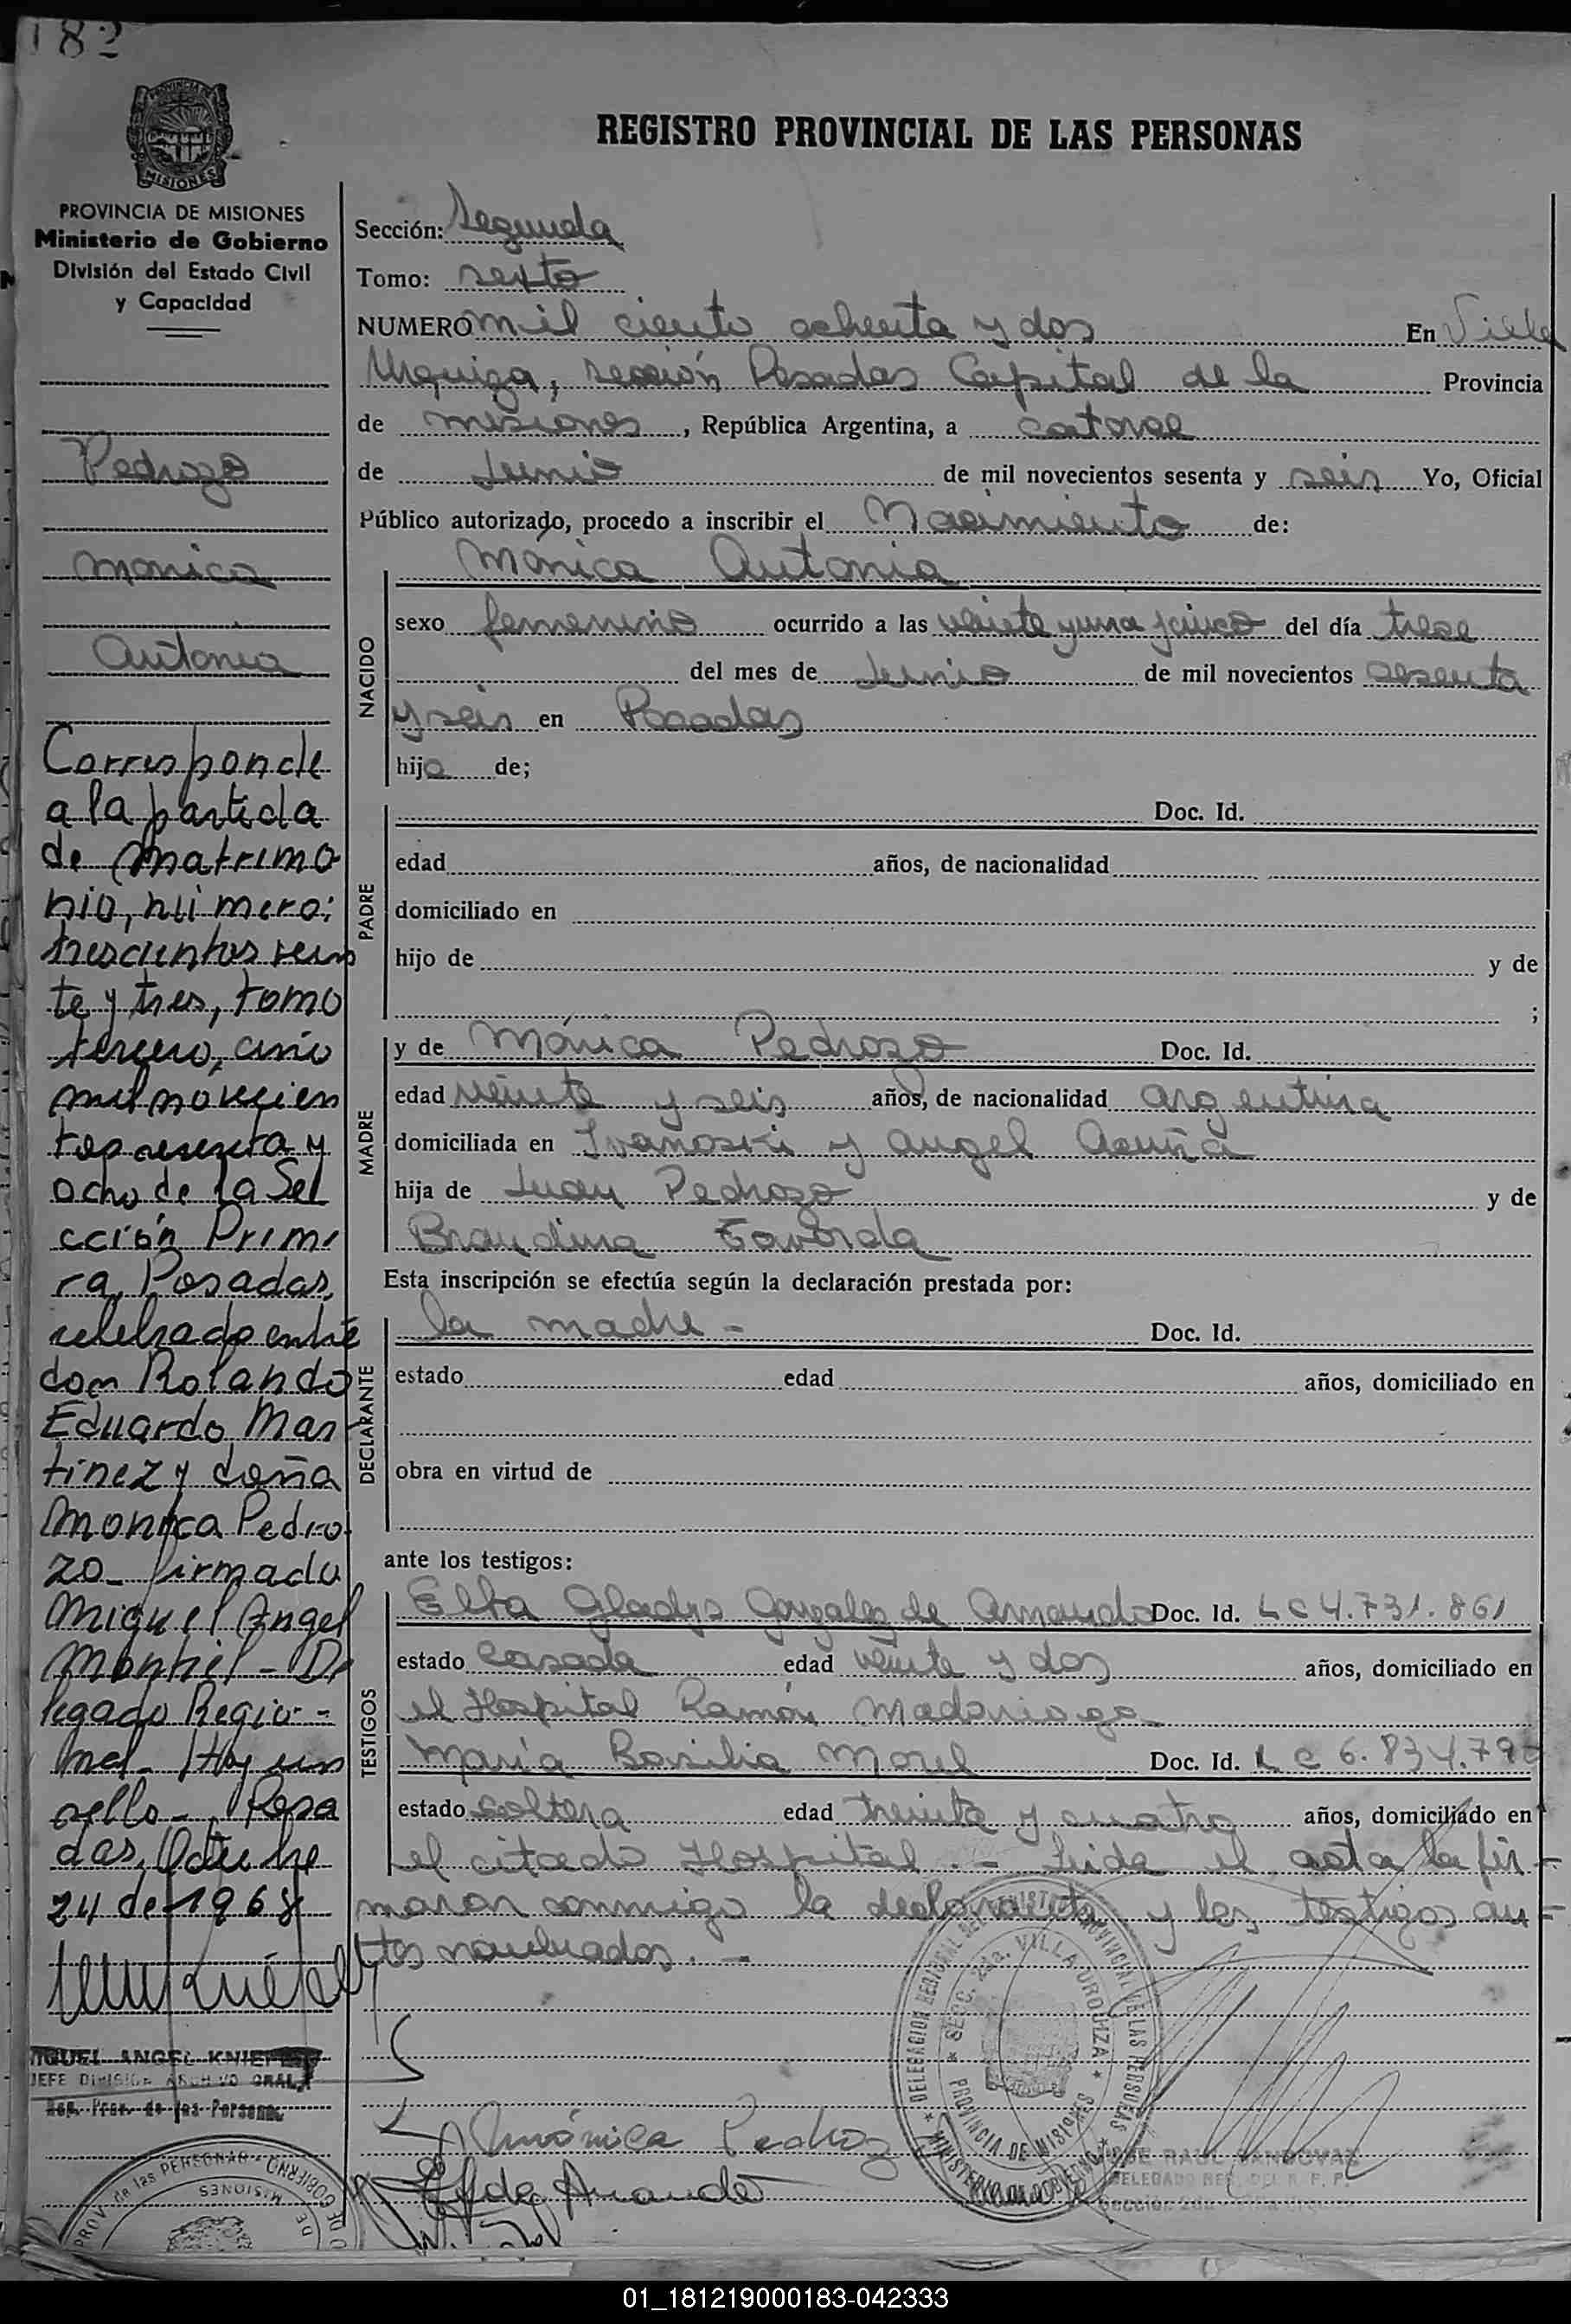 182
REGISTRO PROVINCIAL DE LAS PERSONAS
PROVINCIA DE MISIONES
Ministerio de Gobierno
División del Estado Civil
y Capacidad
Pedrozo
Monica
Antonia
Corresponde
a la partida
de Matrimo
nio, número:
trescientos vein
te y tres, tomo
tercero, año
mil novecien
tos sesenta y
ocho de la Se
cción Prime
ra, Posadas,
celebrado entre
don Rolando
Eduardo Mar
tinez y doña
Monica Pedro
zo_ firmado
Miguel Angel
Montiel - De
legado Regio-
nal_ Hay un
sello_ Posa
das, Octubre
24 de 1968
MIGUEL ANGEL
JEFE DIVISION ARCHIVO GRAL.
Reg. Prov. de las Personas
PROV. de las PERSONAS
MISIONES
Sección: Segunda
Tomo: sexto
NUMERO mil ciento ochenta y dos En Villa
Urquiza, sección Posadas Capital de la Provincia
de misiones, República Argentina, a catorce
de Junio de mil novecientos sesenta y seis Yo, Oficial
Público autorizado, procedo a inscribir el Nacimiento de:
NACIDO
Mónica Antonia
sexo femenino ocurrido a las veinte y una y cinco del día trece
del mes de Junio de mil novecientos sesenta
y seis en Posadas
hija de;
PADRE
Doc. Id.
edad años, de nacionalidad
domiciliado en
hijo de y de
;
MADRE
y de Mónica Pedrozo Doc. Id.
edad veinte y seis años, de nacionalidad argentina
domiciliada en Ivanoski y Angel Acuña
hija de Juan Pedrozo y de
Braudina
Esta inscripción se efectúa según la declaración prestada por:
DECLARANTE
la madre - Doc. Id.
estado edad años, domiciliado en
obra en virtud de
ante los testigos:
TESTIGOS
Elba Gladys Gonzalez de Amando Doc. Id. L C 4.731.861
estado casada edad veinte y dos años, domiciliado en
el Hospital Ramón Madariaga
María Basilia Morel Doc. Id. L C 6.834.79
estado soltera edad treinta y cuatro años, domiciliado en
el citado Hospital.- Leida el acta la fir-
maron conmigo la declarante y los testigos an-
tes nombrados. -
DELEGACION REGIONAL DEL REGISTRO PROVINCIAL DE LAS PERSONAS
SECC. 2da. VILLA URQUIZA
PROVINCIA DE MISIONES
MINISTERIO DE GOBIERNO
Mónica Pedrozo
JOSE RAUL SANDOVAL
DELEGADO REG. DEL R. P. P.
Sección 2da. Villa Urquiza
01_181219000183-042333